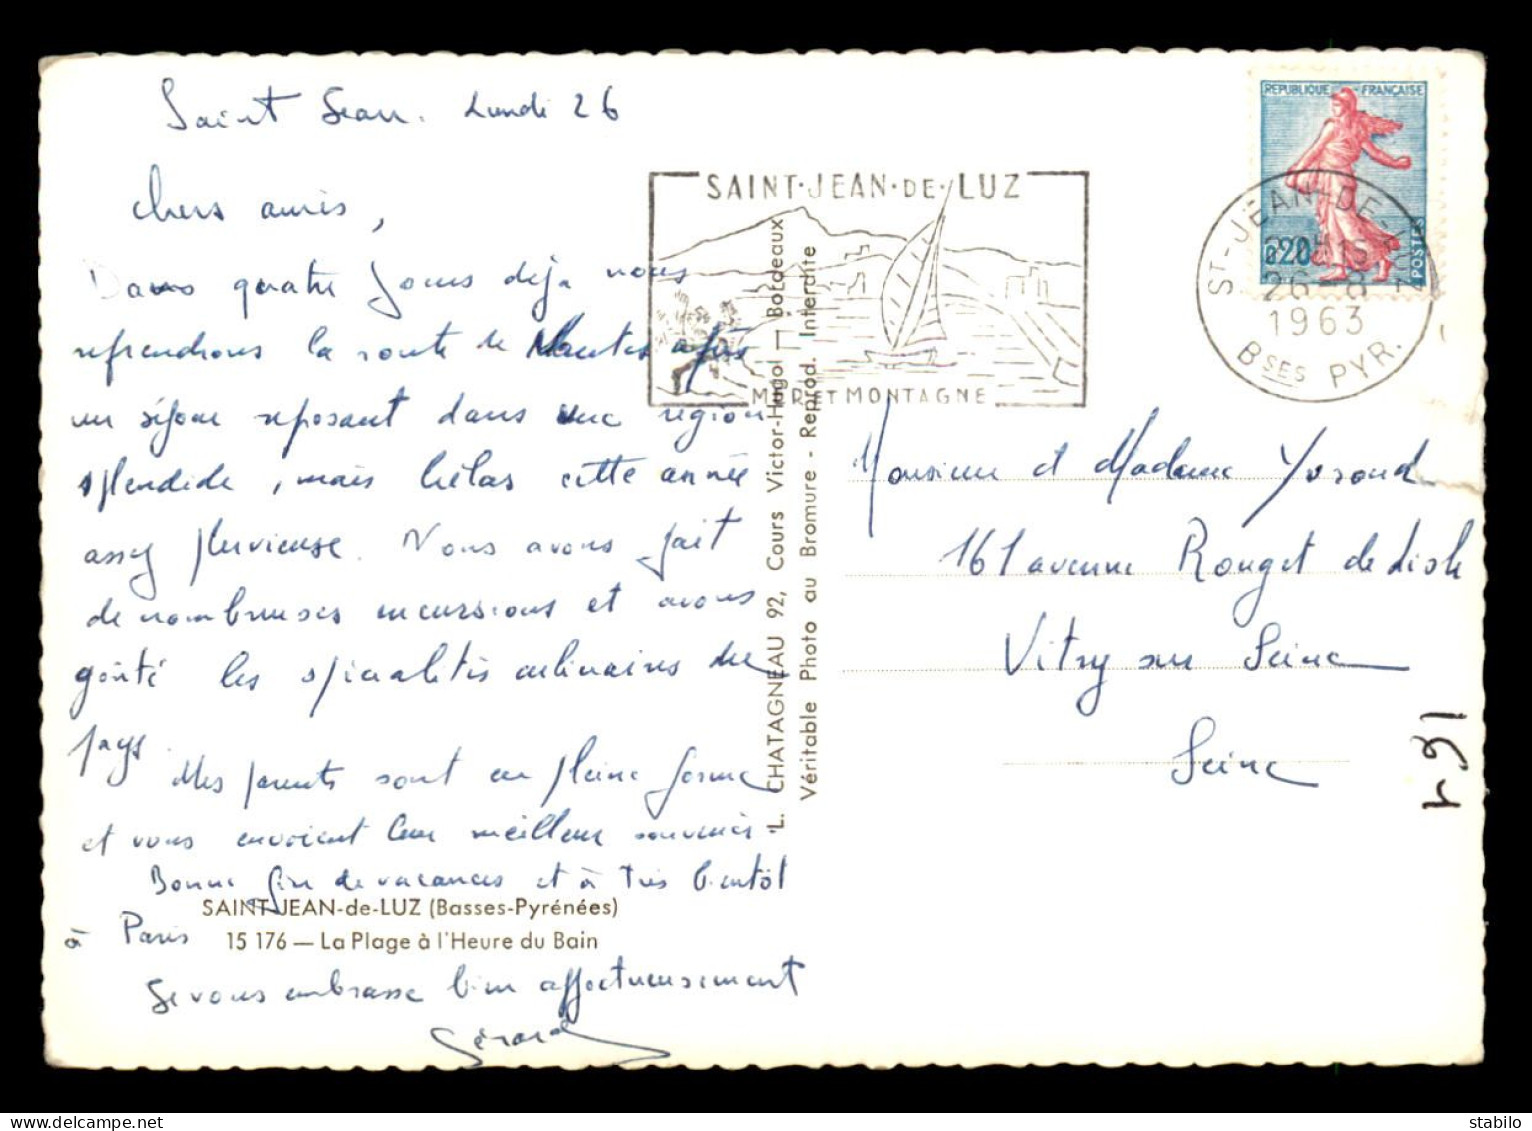 Saint Jean. Lundi 26
Chers amis,
Dans quatre jours déjà nous
reprendrons la route de Nantes après
un séjour reposant dans une région
splendide, mais hélas cette année
assez pluvieuse. Nous avons fait
de nombreuses excursions et avons
goûté les spécialités culinaires du
pays.
Mes parents sont en pleine forme
et vous envoient leur meilleur souvenir.
Bonne fin de vacances et à très bientôt
à Paris
Je vous embrasse bien affectueusement
Gérard
SAINT-JEAN-de-LUZ (Basses-Pyrénées)
15 176 — La Plage à l'Heure du Bain
L. CHATAGNEAU 92, Cours Victor-Hugo — Bordeaux
Véritable Photo au Bromure - Reprod. Interdite
SAINT·JEAN·DE·LUZ
MER ET MONTAGNE
REPUBLIQUE FRANÇAISE
0,20
POSTES
ST-JEAN-DE-LUZ
26-8
1963
BSES PYR.
Monsieur et Madame
161 avenue Rouget de Lisle
Vitry sur Seine
Seine
stabilo